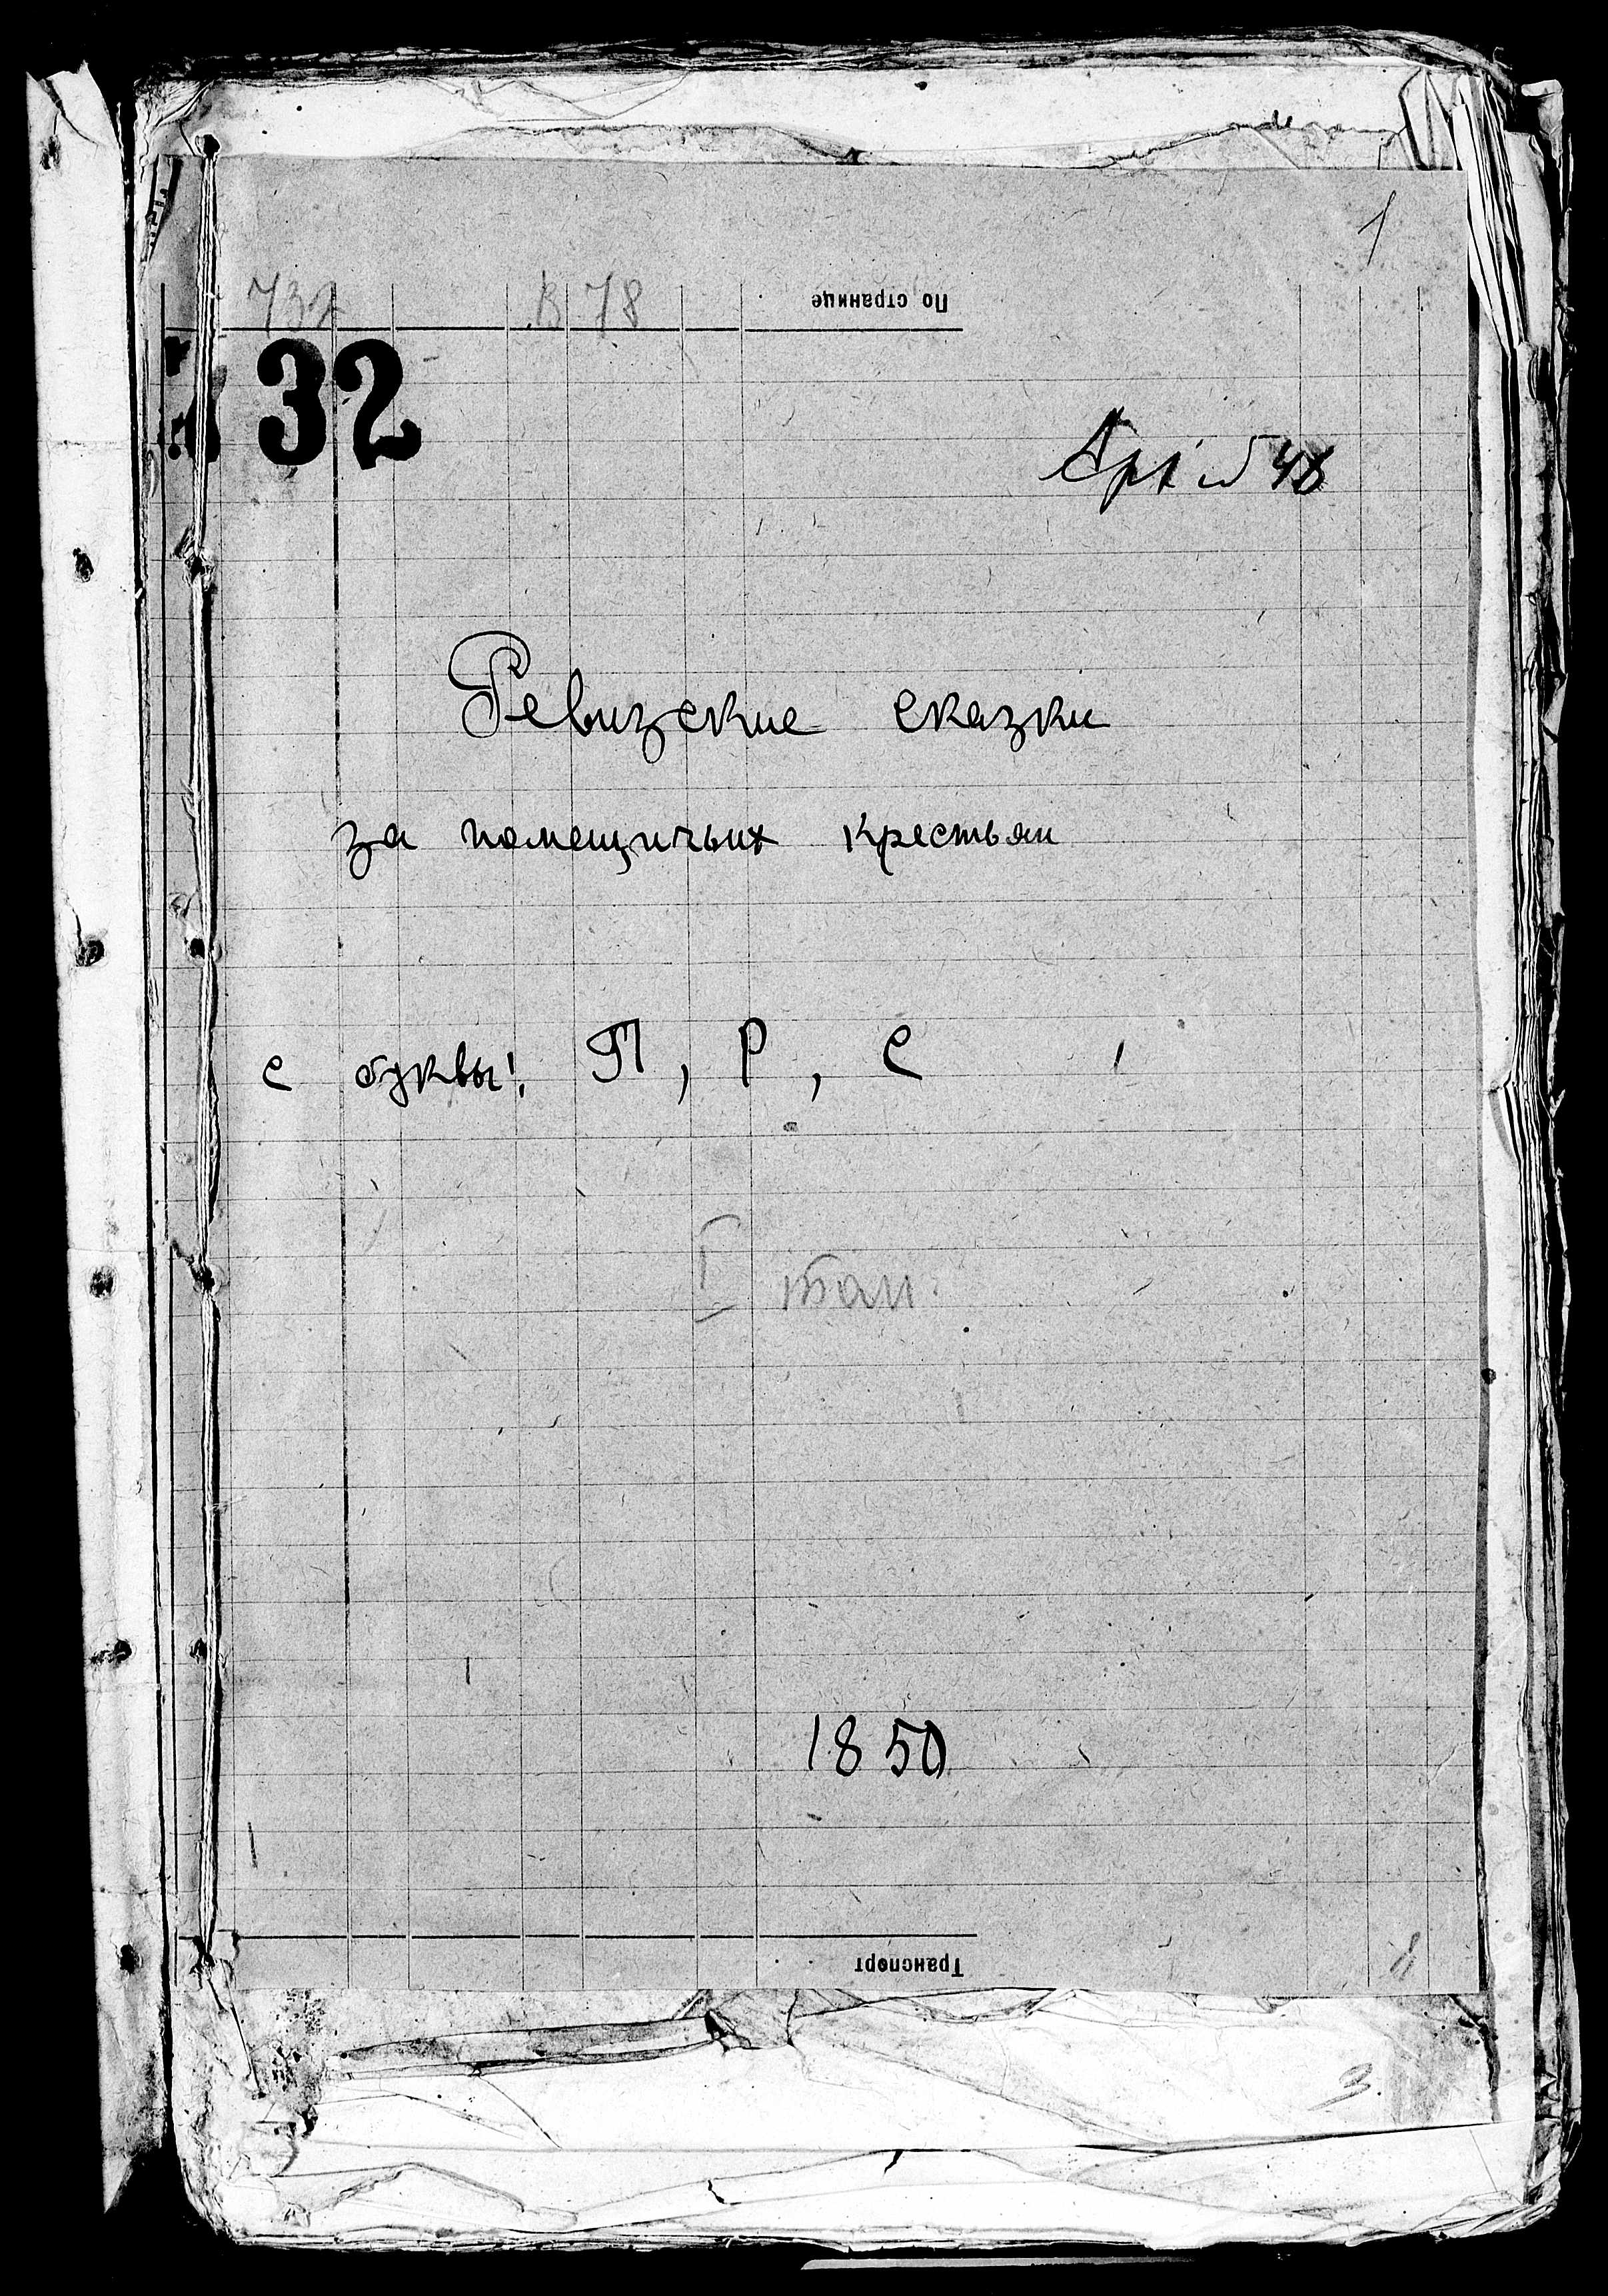 1
732 В 78
По странице
732
Арх № 48
Ревизские сказки
за помещичьих крестьян
с буквы: П, Р, С
I том.
1850
Транспорт
3.